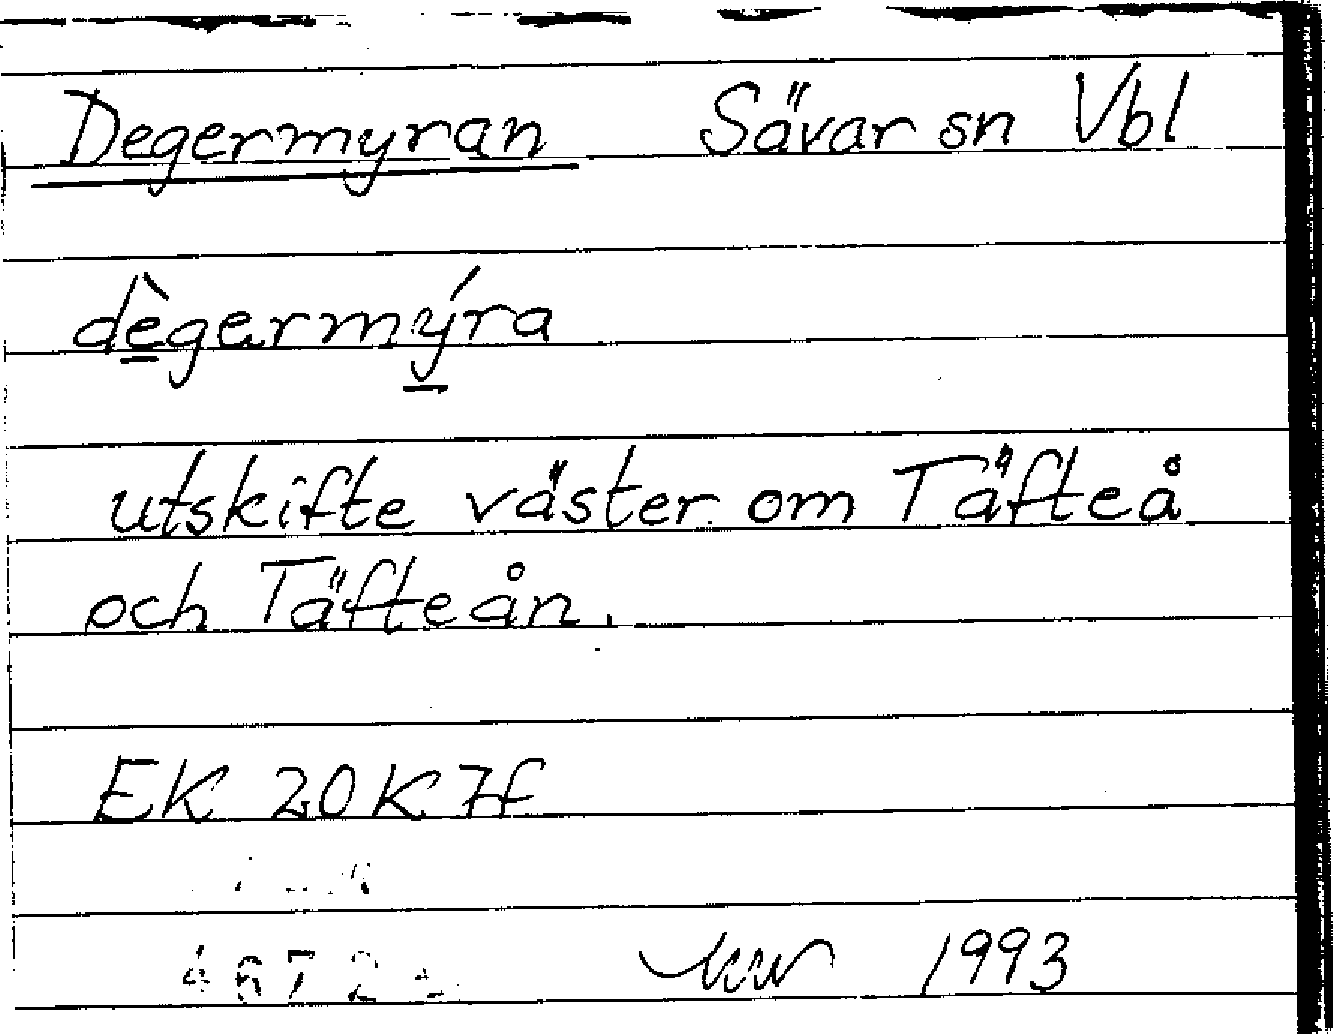 Degermyran Sävar sn Vbl
dègermýra
utskifte väster om Täfteå
och Täfteån.
EK 20K 7f
1993